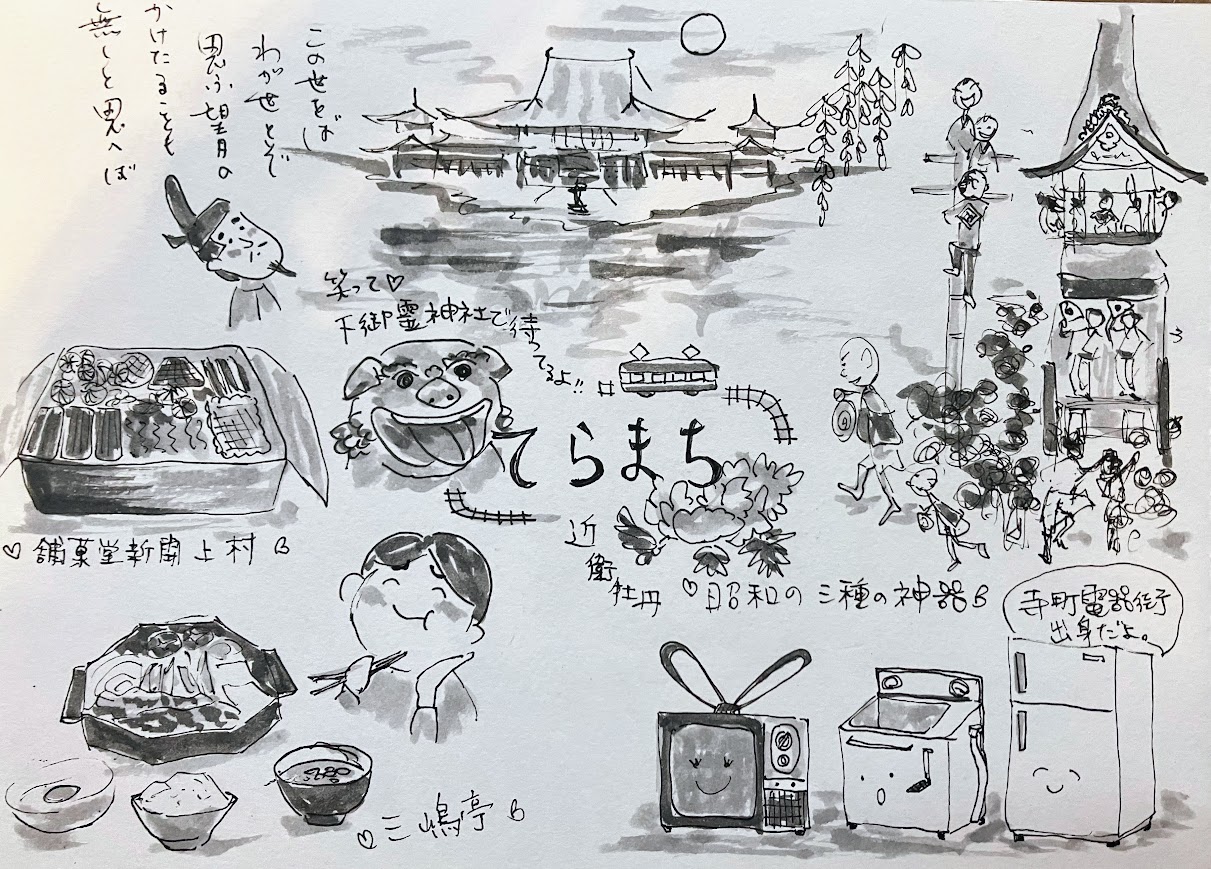 この世をば
わが世とぞ
思ふ望月の
かけたることも
無しと思へば
笑って♡
下御霊神社で待ってるよ!!
てらまち
近衛
牡丹
♡舗菓堂新開上村
♡昭和の三種の神器
寺町電器街
出身だよ。
♡三嶋亭